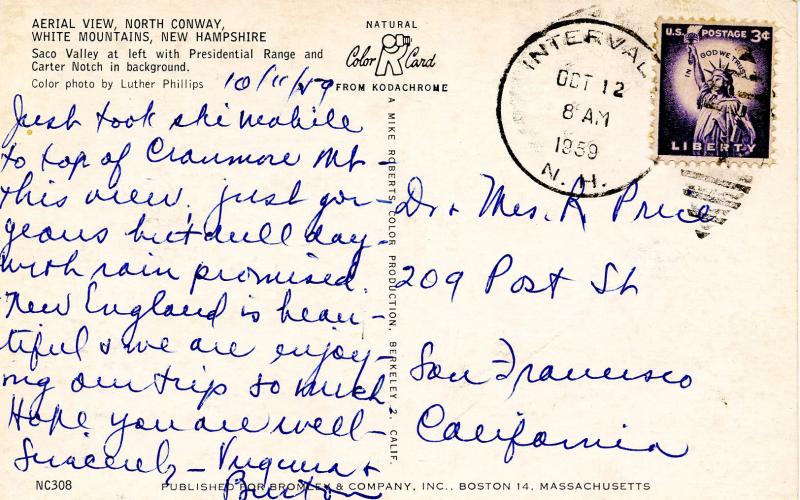 AERIAL VIEW, NORTH CONWAY,
WHITE MOUNTAINS, NEW HAMPSHIRE
Saco Valley at left with Presidential Range and
Carter Notch in background.
Color photo by Luther Phillips
NATURAL
Color Card
FROM KODACHROME
10/11/59
Just took skimobile
to top of Cranmore Mt-
this view. just gor-
geous but dull day-
with rain promised.
New England is beau-
tiful & we are enjoy-
ing our trip so much
Hope you are well-
Sincerely - Virginia +
Burton
A MIKE ROBERTS COLOR PRODUCTION, BERKELEY 2, CALIF.
INTERVAL
OCT 12
8 AM
1959
N. H.
U.S. POSTAGE 3¢
IN GOD WE TRUST
LIBERTY
Dr + Mrs. R Price
209 Post St
San Francisco
California
NC308
PUBLISHED FOR BROMLEY & COMPANY, INC., BOSTON 14, MASSACHUSETTS